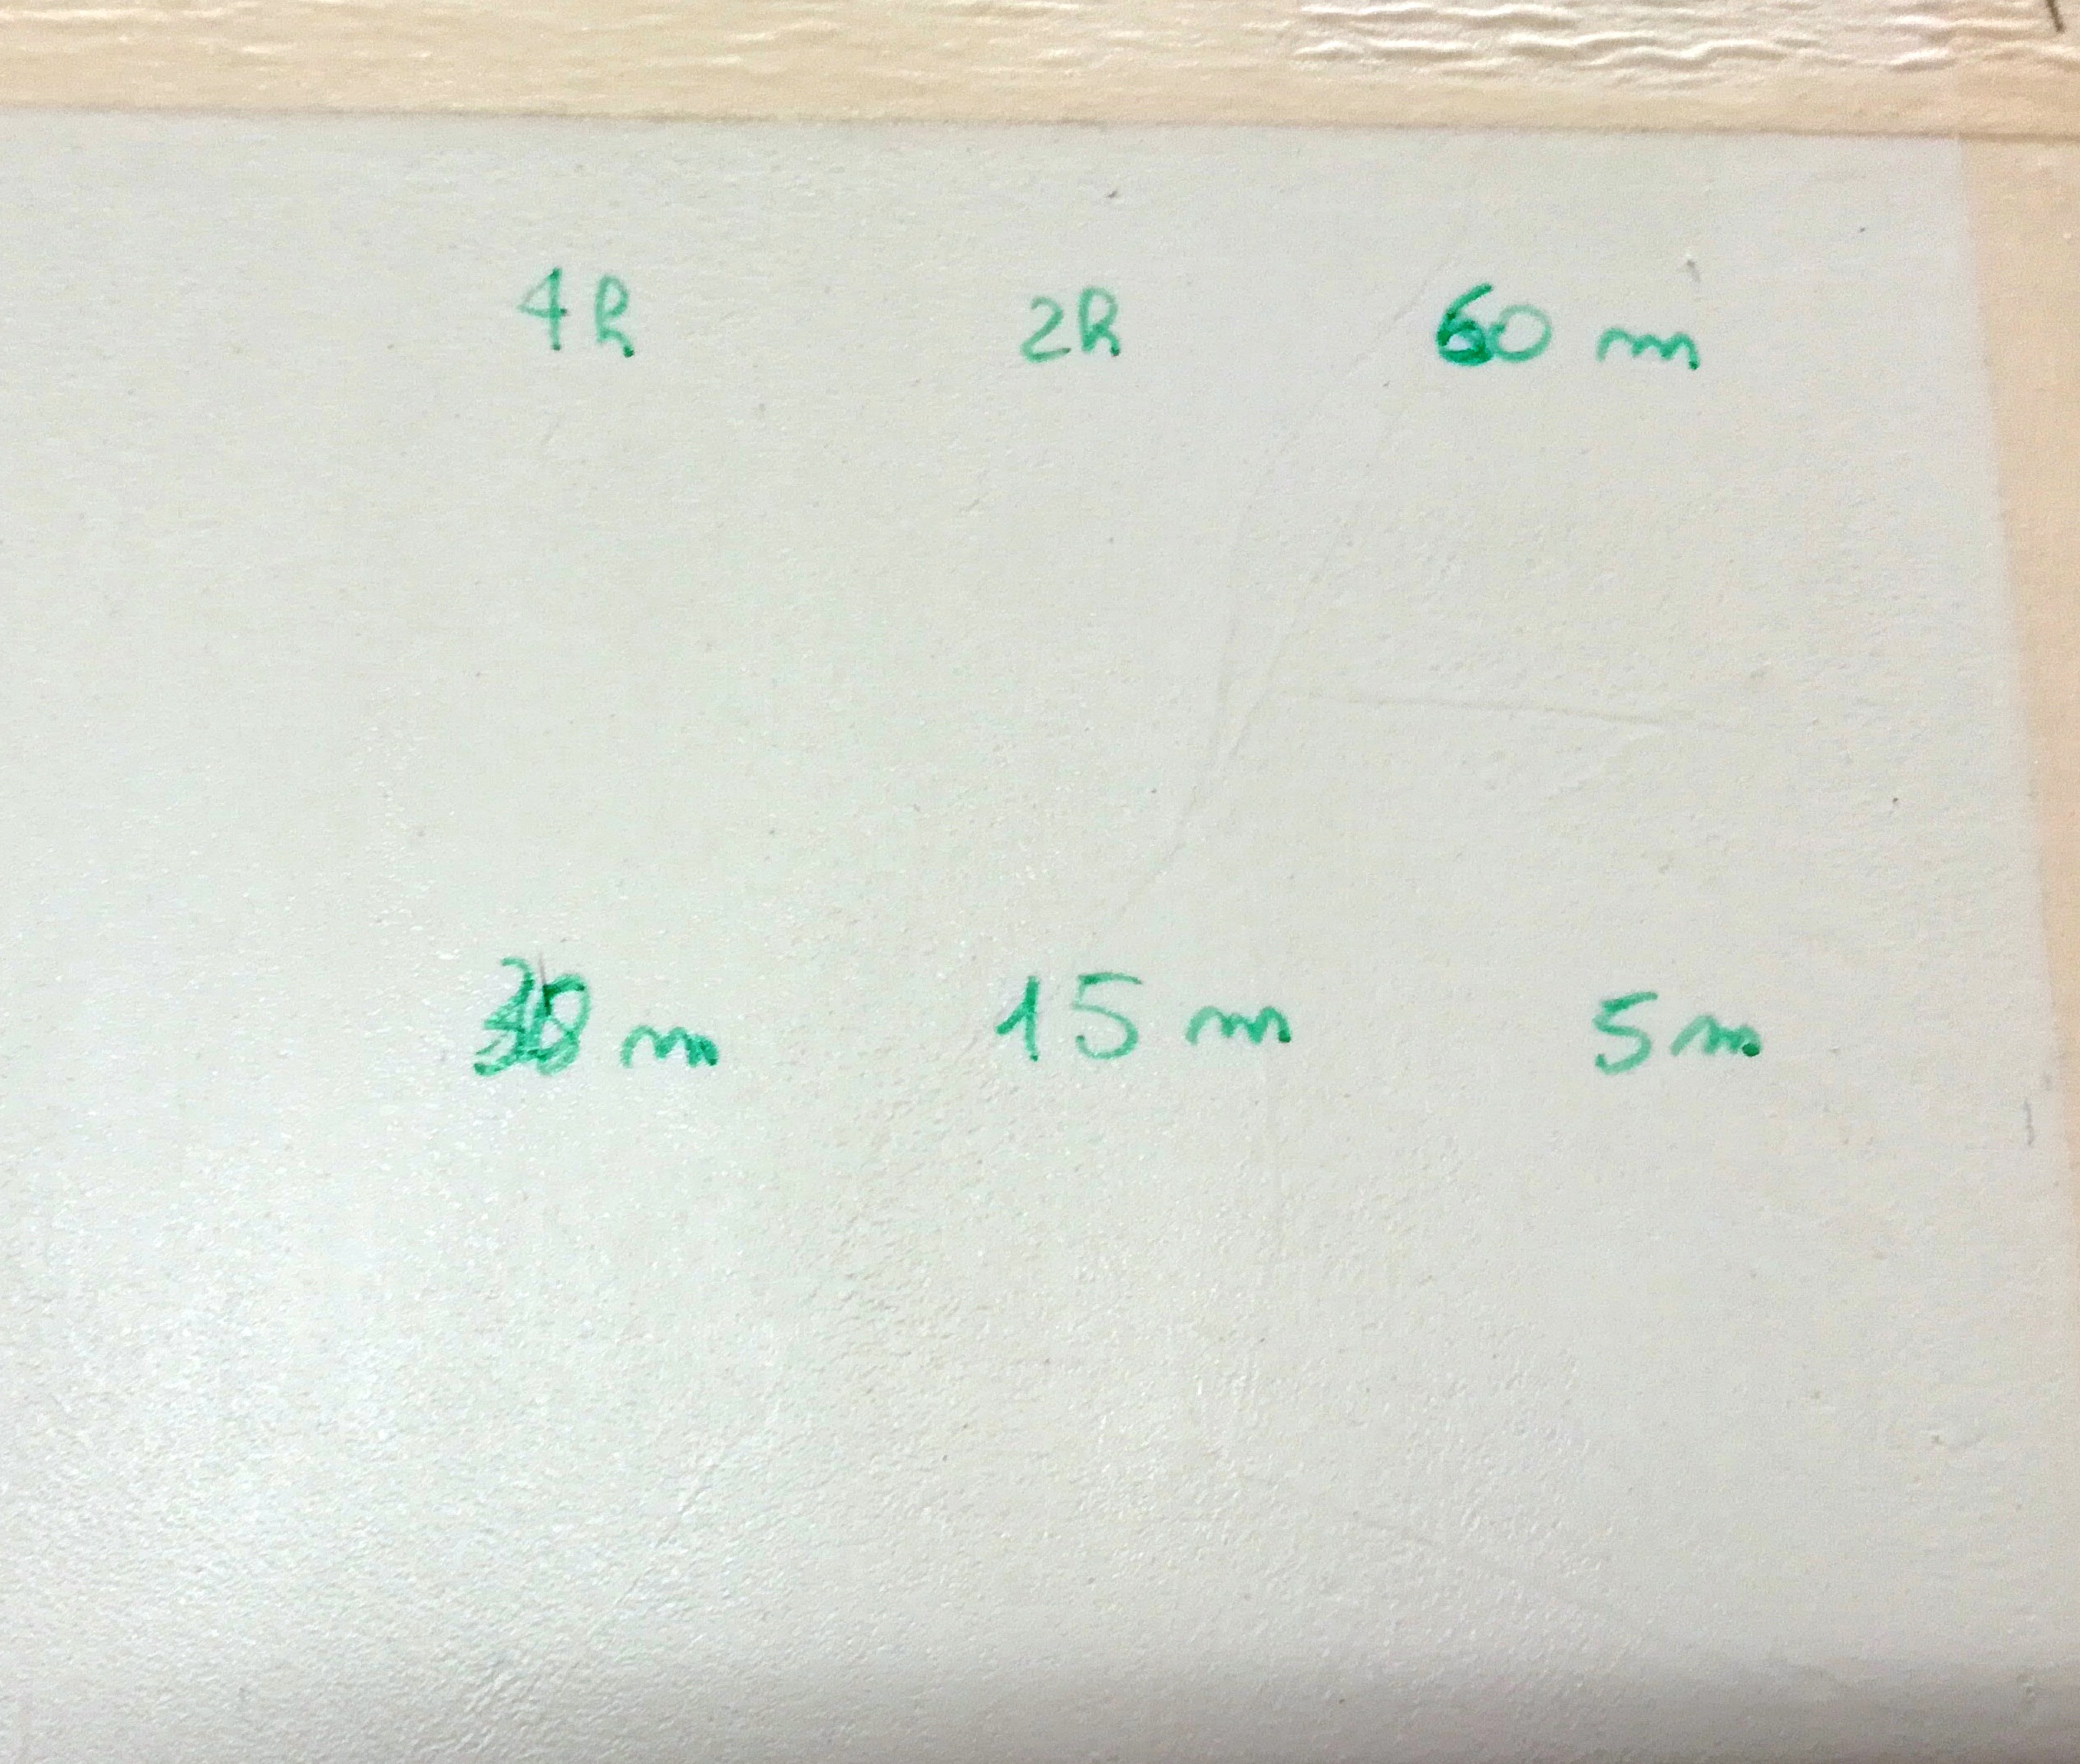 4h 2h 60 m
m 15 m 5m